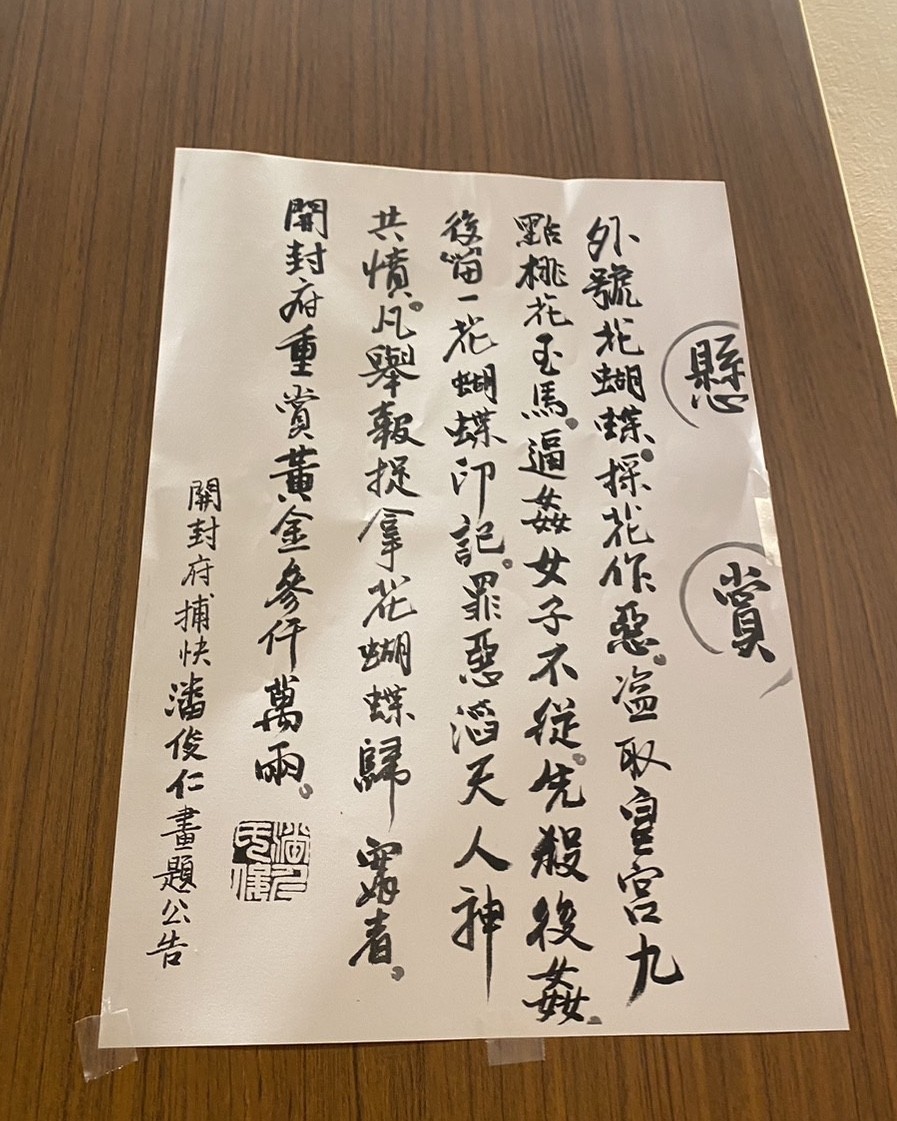 懸賞
外號花蝴蝶。採花作惡。盗取皇宮九
點桃花玉馬。逼姦女子不從。先殺後姦。
後留一花蝴蝶印記。罪惡滔天人神
共憤。凡舉報捉拿花蝴蝶歸案者。
開封府重賞黃金參仟萬兩。
開封府捕快潘俊仁畫題公告